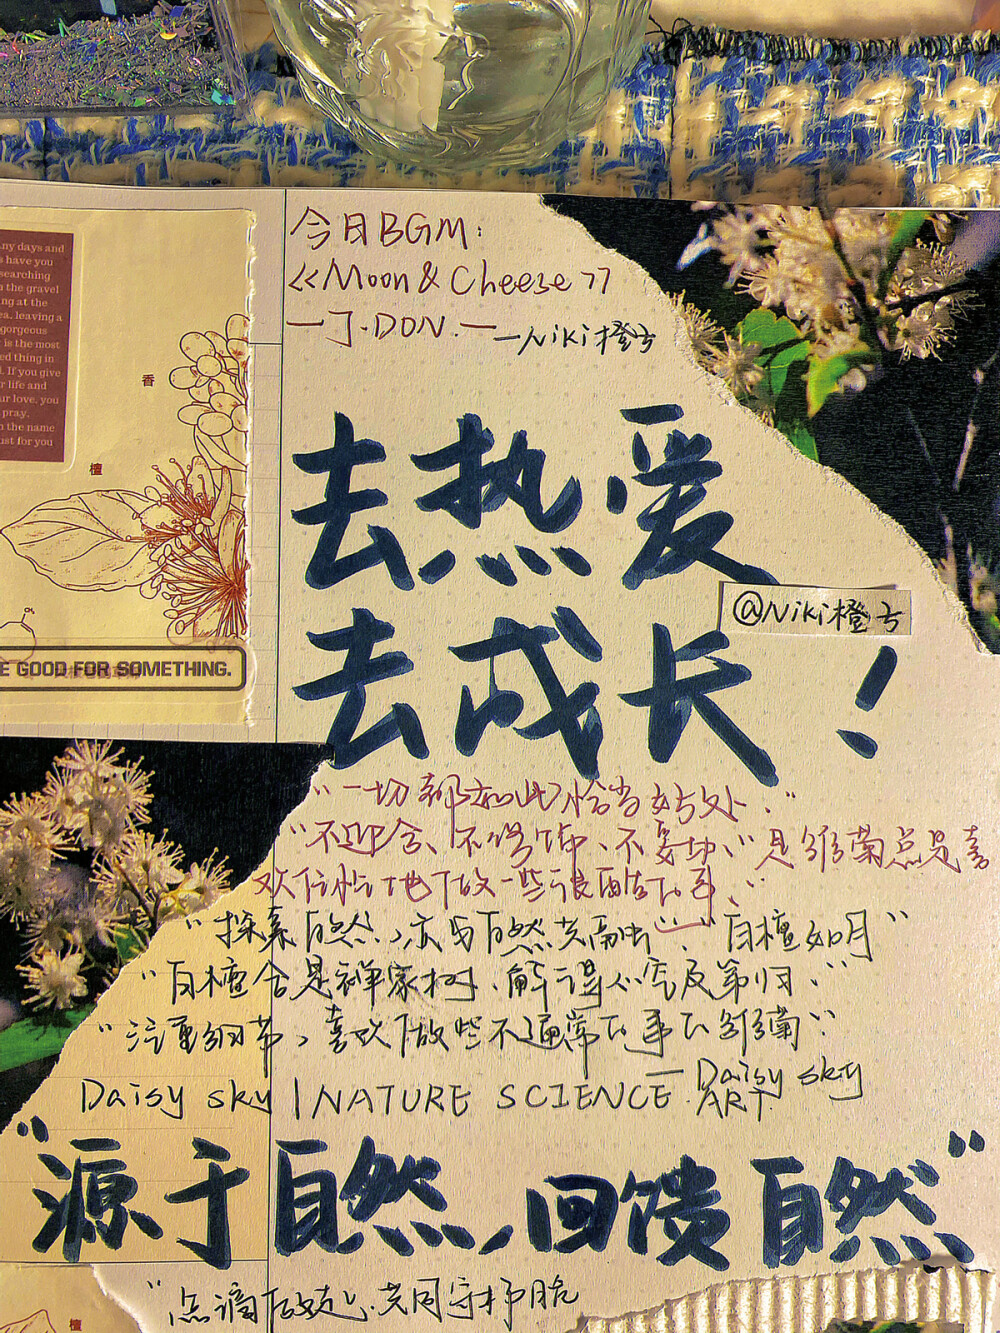 今日BGM：
《Moon & Cheese》
—丁.DON.—
—Niki橙兮
ny days and
s have you
searching
the gravel
ng at the
ea, leaving a
gorgeous
is the most
ed thing in
. If you give
r life and
ur love, you
pray,
the name
ust for you
香
檀
CH₃
E GOOD FOR SOMETHING.
去热爱
@Niki橙兮
去成长！
"一切都如此恰当好处."
"不迎合、不将就、不妥协、"是雏菊总是喜
欢任性地做一些很酷的事、"
"探索自然、亦与自然共融""白檀如月"
"白檀舍是禅家树、解得人气及第归."
"注重细节，喜欢做些不通常的事的雏菊"
—Daisy sky
Daisy sky | NATURE SCIENCE. ART
"源于自然，回馈自然"
"点滴做起、共同守护
檀